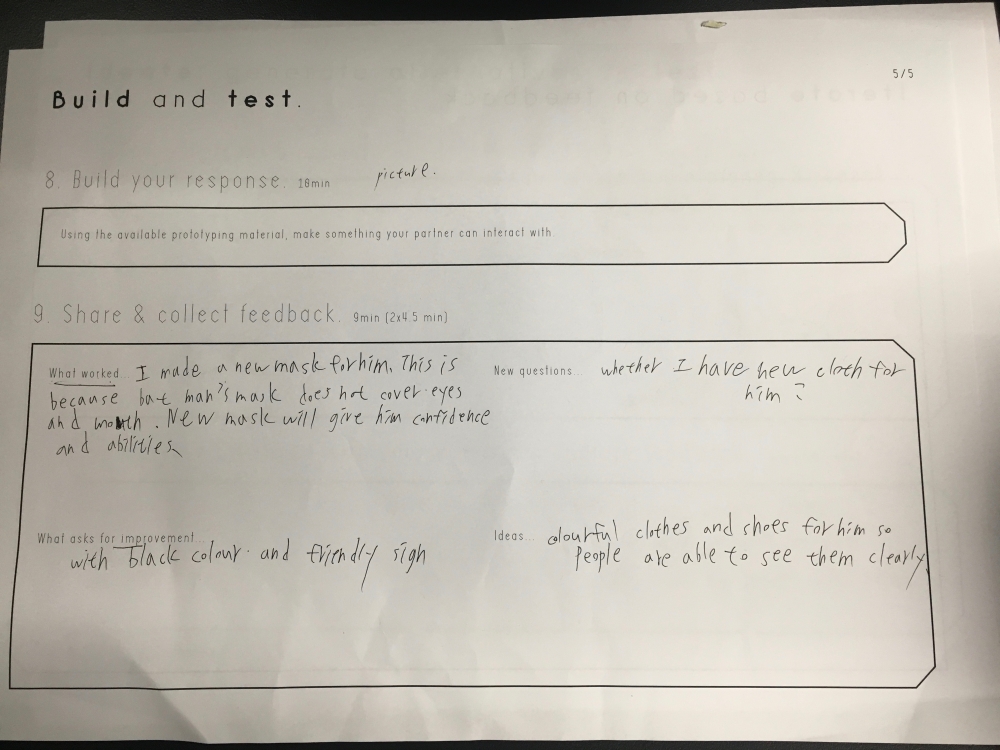 5/5
Build and test.
8. Build your response. 18min picture.
Using the available prototyping material, make something your partner can interact with
9. Share & collect feedback. 9min (2x4.5 min)
What worked... I made a new mask for him. This is
because bat man's mask does not cover eyes
and mouth. New mask will give him confidence
and abilities
New questions... whether I have new cloth for
him?
What asks for improvement...
with black colour and friendly sign
Ideas... colourful clothes and shoes for him so
people are able to see them clearly